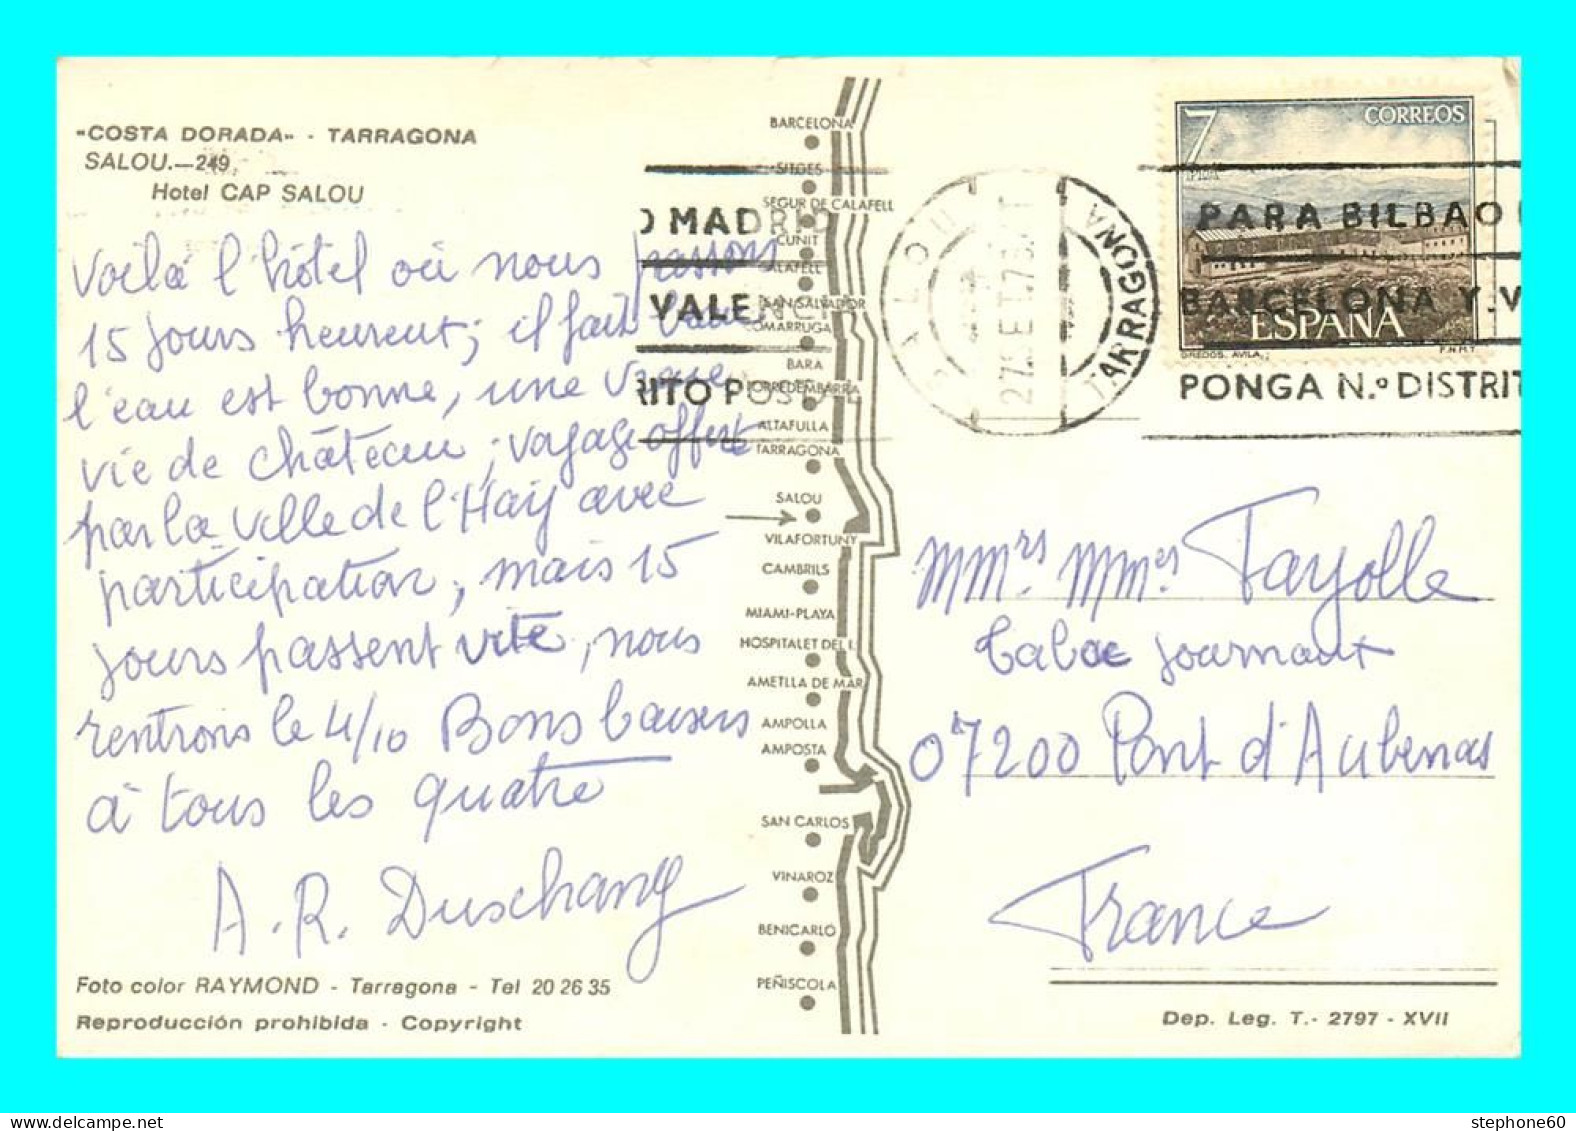 "COSTA DORADA" - TARRAGONA
SALOU.—249
Hotel CAP SALOU
Voilà l'hôtel où nous passons
15 jours heureux; il fait beau
l'eau est bonne, une vraie
vie de château; voyage offert
par la ville de l'Haÿ avec
participation, mais 15
jours passent vite, nous
rentrons le 4/10 Bons baisers
à tous les quatre
A. R. Duschang
Foto color RAYMOND - Tarragona - Tel 20 26 35
Reproducción prohibida - Copyright
BARCELONA
SITGES
SEGUR DE CALAFELL
CUNIT
CALAFELL
SAN SALVADOR
COMARRUGA
BARA
TORREDEMBARRA
ALTAFULLA
TARRAGONA
SALOU
VILAFORTUNY
CAMBRILS
MIAMI-PLAYA
HOSPITALET DEL I.
AMETLLA DE MAR
AMPOLLA
AMPOSTA
SAN CARLOS
VINAROZ
BENICARLO
PEÑISCOLA
O MADRID
VALENCIA
RITO POSTAL
SALOU
TARRAGONA
27 SET.76
7
PTAS
CORREOS
ESPAÑA
GREDOS. AVILA.
F.N.M.T.
PARA BILBAO
BARCELONA Y V
PONGA N.º DISTRIT
MMrs MMes Fayolle
Tabac journaux
07200 Pont d'Aubenas
France
Dep. Leg. T.- 2797 - XVII
stephone60